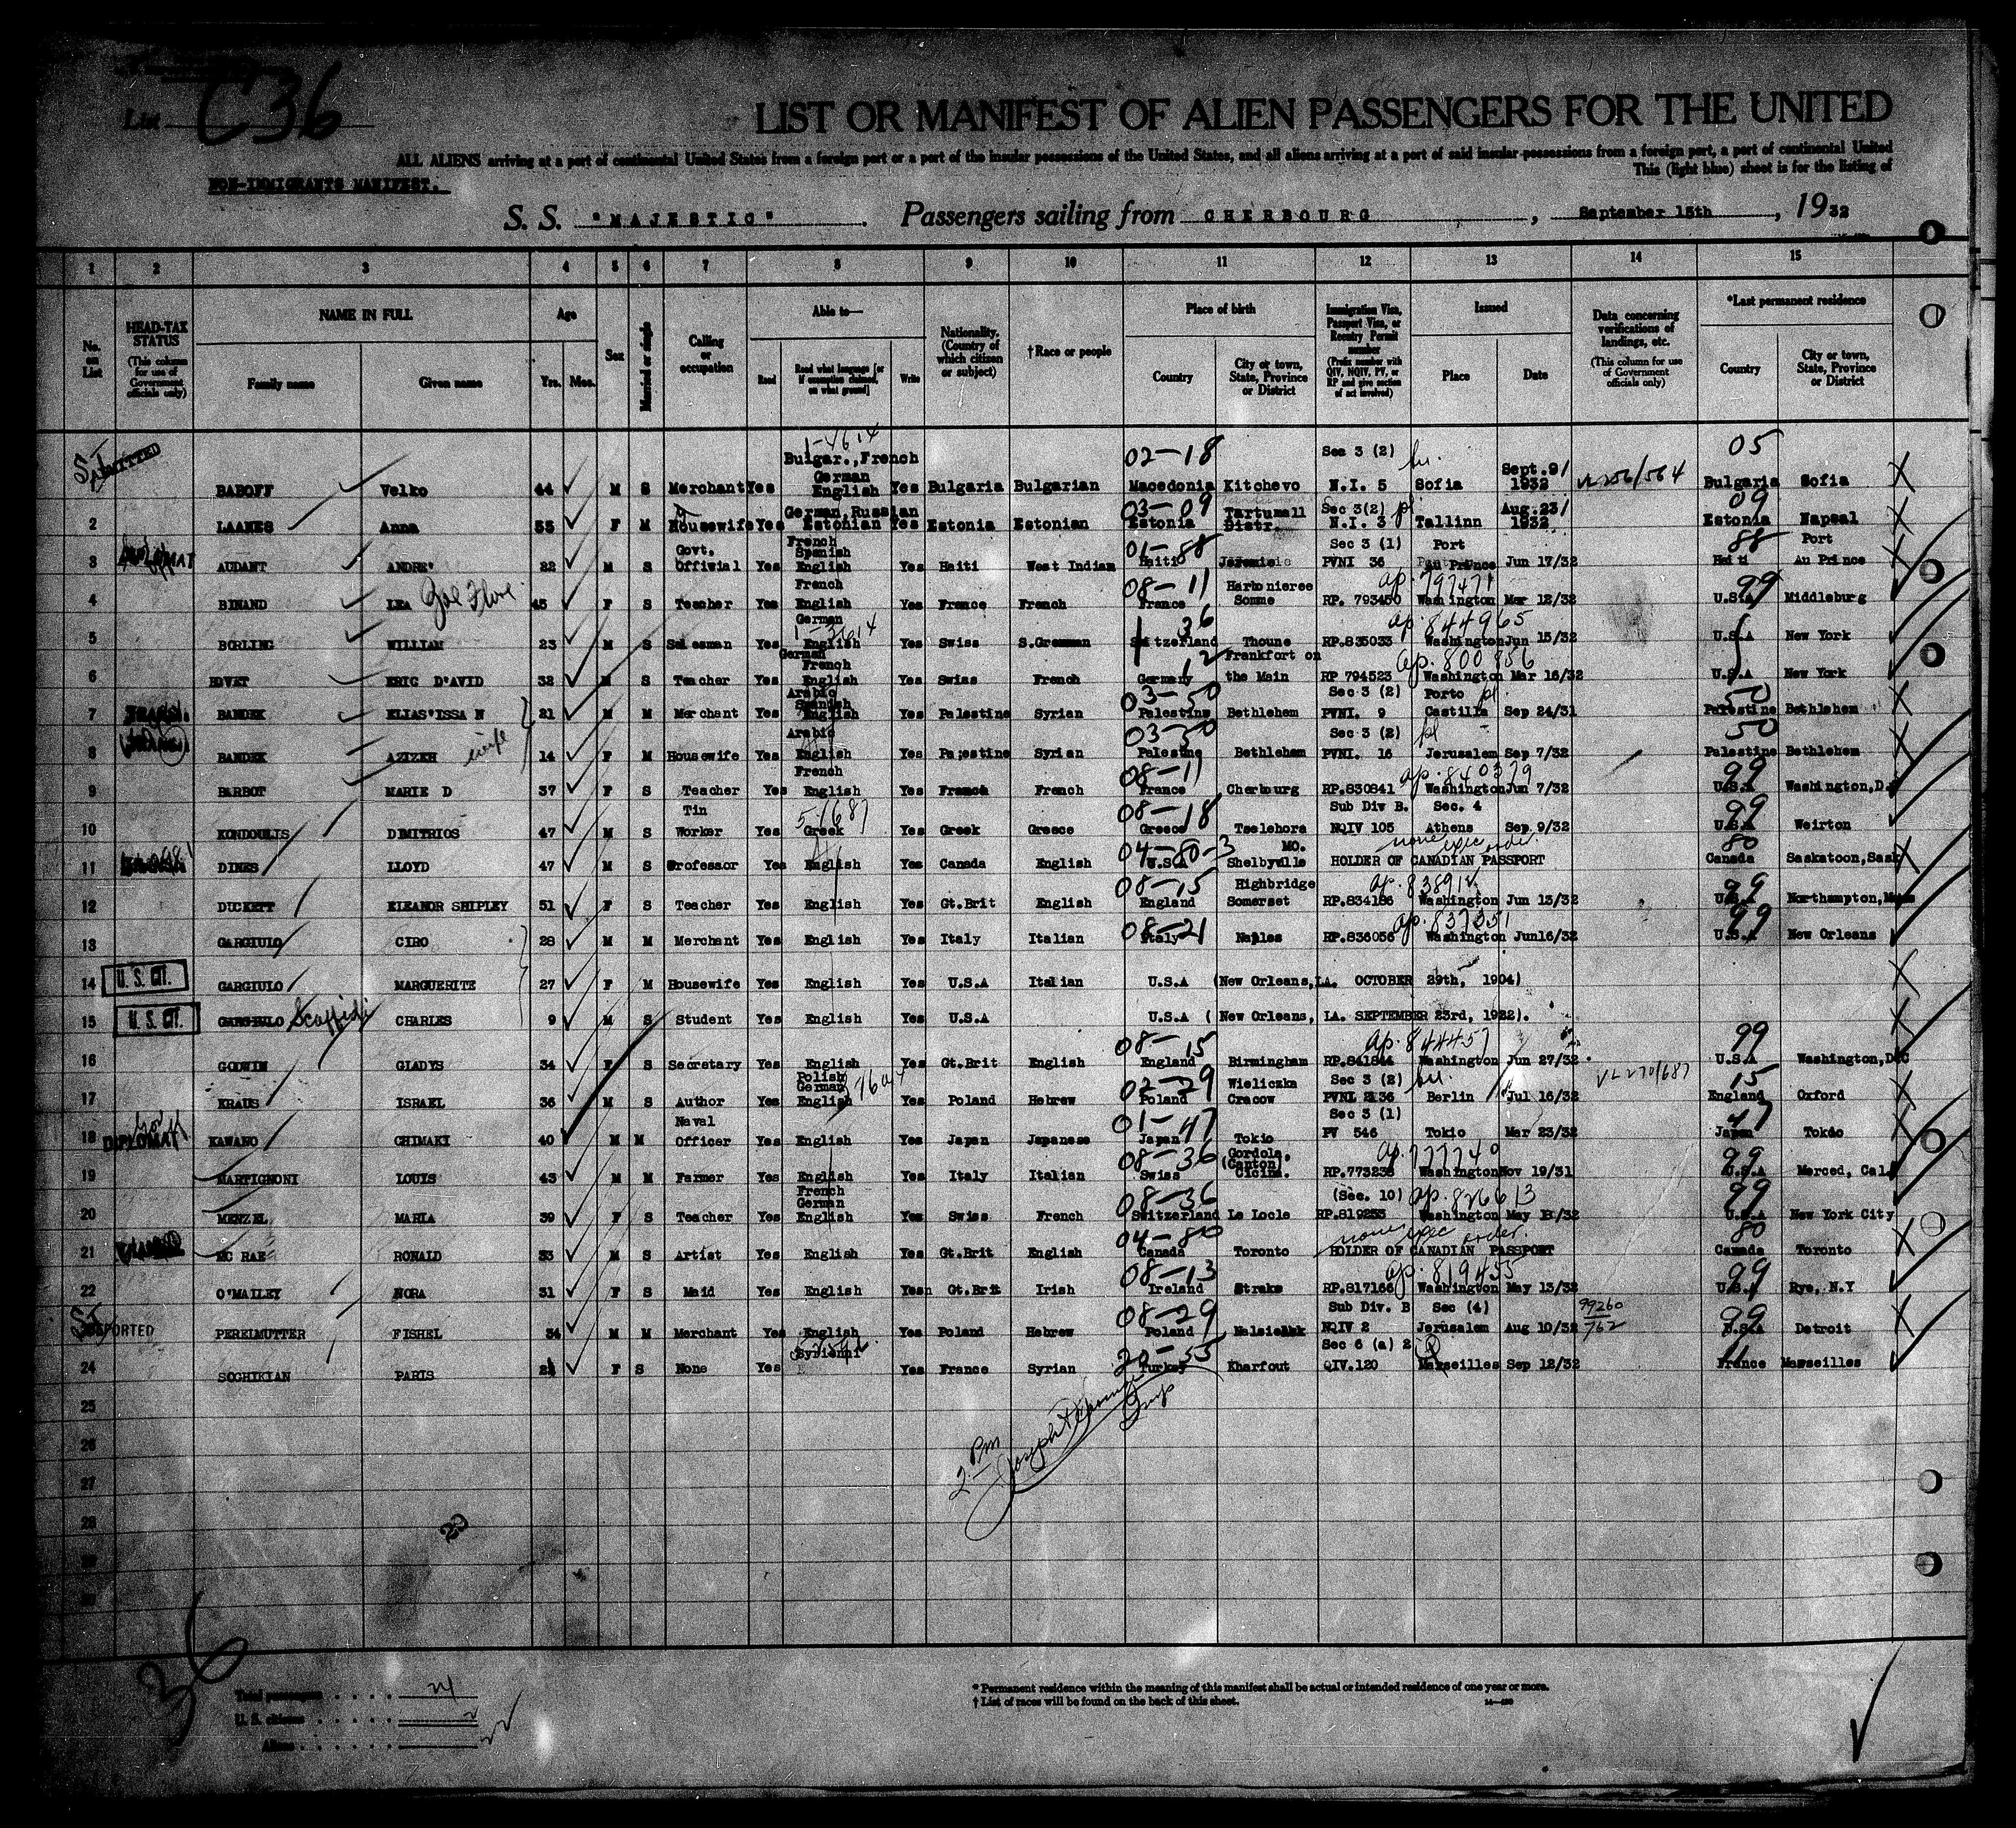 List C36
LIST OR MANIFEST OF ALIEN PASSENGERS FOR THE UNITED
ALL ALIENS arriving at a port of continental United States from a foreign port or a port of the insular possessions of the United States, and all aliens arriving at a port of said insular possessions from a foreign port, a port of continental United
This (light blue) sheet is for the listing of
NON-IMMIGRANTS MANIFEST.
S. S. "MAJESTIC" Passengers sailing from CHERBOURG, September 15th, 1932
1 2 3 4 5 6 7 8 9 10 11 12 13 14 15
No. on List
HEAD-TAX STATUS (This column for use of Government officials only)
NAME IN FULL
Family name Given name
Age Yrs. Mos.
Sex
Married or single
Calling or occupation
Able to—
Read Read what language [or if exemption claimed, on what ground] Write
Nationality. (Country of which citizen or subject)
†Race or people
Place of birth
Country City or town, State, Province or District
Immigration Visa, Passport Visa, or Reentry Permit number (Prefix number with QIV, NQIV, PV, or RP and give section of act involved)
Issued
Place Date
Data concerning verifications of landings, etc. (This column for use of Government officials only)
*Last permanent residence
Country City or town, State, Province or District
ADMITTED BABOFF Velko 44 M S Merchant Yes Bulgar., French German English Yes Bulgaria Bulgarian 02-18 Macedonia Kitchevo Sec 3 (2) N.I. 5 Sofia Sept.9/1932 05 Bulgaria Sofia
2 LAANES Anna 55 F M Housewife Yes German, Russian Estonian Yes Estonia Estonian 03-09 Estonia Distr. Sec 3(2) N.I. 3 Tallinn Aug.23/1932 09 Estonia Hapsal
3 DIPLOMAT AUDANT ANDRE' 22 M S Govt. Offiwial Yes French Spanish English Yes Haiti West Indian 01-88 Haiti Jeremie Sec 3 (1) PVNI 36 Port Au Prince Jun 17/32 88 Haiti Port Au Prince
4 BINAND LEA 45 F S Teacher Yes French English Yes France French 08-11 France Harbonieree Somme RP. 793450 ap. 797471 Washington Mar 12/32 99 U.S.A Middleburg
5 BORLING WILLIAM 23 M S Salesman Yes German English Yes Swiss S.Gremman 36 Switzerland Thoune RP.835033 ap. 844965 Washington Jun 15/32 U.S.A New York
6 HOVET ERIC D'AVID 32 M S Teacher Yes German French English Yes Swiss French Germany Frankfort on the Main RP 794523 ap. 800856 Washington Mar 16/32 U.S.A New York
7 BANDEK ELIAS'ISSA N 21 M M Merchant Yes Arabic Spanish English Yes Palestine Syrian 03-50 Palestine Bethlehem Sec 3 (2) PVNI. 9 Porto Castilla Sep 24/31 50 Palestine Bethlehem
8 BANDEK AZIZEH wife 14 F M Housewife Yes Arabic English Yes Pa;estine Syrian 03-50 Palestine Bethlehem Sec 3 (2) PVNI. 16 Jerusalem Sep 7/32 50 Palestine Bethlehem
9 BARBOT MARIE D 37 F S Teacher Yes French English Yes French French 08-11 France Cherbourg RP.830841 ap. 840379 Washington Jun 7/32 99 U.S.A Washington,D.C
10 KONDOULIS DIMITRIOS 47 M S Tin Worker Yes Greek Yes Greek Greece 08-18 Greece Tselehora Sub Div B. Sec. 4 NQIV 105 Athens Sep 9/32 99 U.S.A Weirton
11 DINES LLOYD 47 M S Professor Yes English Yes Canada English 04-80-3 U.S.A MO. Shelbyville none exec order. HOLDER OF CANADIAN PASSPORT 80 Canada Saskatoon,Sask
12 DUCKETT ELEANOR SHIPLEY 51 F S Teacher Yes English Yes Gt.Brit English 08-15 England Highbridge Somerset RP.834186 Washington Jun 13/32 99 U.S.A Northampton,Mass
13 GARGIULO CIRO 28 M M Merchant Yes English Yes Italy Italian 08-21 Italy Naples RP.836056 ap. 837251 Washington Jun16/32 99 U.S.A New Orleans
14 U.S. CIT. GARGIULO MARGUERITE 27 F M Housewife Yes English Yes U.S.A Italian U.S.A (New Orleans, LA. OCTOBER 29th, 1904)
15 U.S. CIT. GARGIULO Scaffidi CHARLES 9 M S Student Yes English Yes U.S.A U.S.A (New Orleans, LA. SEPTEMBER 23rd, 1922).
16 GODWIN GLADYS 34 F S Secretary Yes English Yes Gt.Brit English 08-15 England Birmingham RP.841844 ap. 844457 Washington Jun 27/32 99 U.S.A Washington,D.C
17 KRAUS ISRAEL 36 M S Author Yes Polish German English Yes Poland Hebrew 02-29 Poland Wieliczka Cracow Sec 3 (2) PVNI 2136 Berlin Jul 16/32 15 England Oxford
18 DIPLOMAT KAWANO CHIMAKI 40 M M Naval Officer Yes English Yes Japan Japanese 01-47 Japan Tokio Sec 3 (1) PV 546 Tokio Mar 23/32 47 Japan Tokio
19 MARTIGNONI LOUIS 43 M M Farmer Yes English Yes Italy Italian 08-36 Swiss Gordola. (Canton) Cicina. RP.773238 ap. 777740 Washington Nov 19/31 99 U.S.A Merced, Cal.
20 MENZEL MARIA 39 F S Teacher Yes French German English Yes Swiss French 08-36 Switzerland Le Locle (Sec. 10) RP.819253 ap. 826613 Washington May /32 99 U.S.A New York City
21 MC RAE RONALD 33 M S Artist Yes English Yes Gt.Brit English 04-80 Canada Toronto none exec order. HOLDER OF CANADIAN PASSPORT 80 Canada Toronto
22 O'MALLEY NORA 31 F S Maid Yes English Yes Gt.Brit Irish 08-13 Ireland Strake RP.817166 ap. 819455 Washington May 13/32 99 U.S.A Rye, N.Y
DEPORTED PERELMUTTER FISHEL 34 M M Merchant Yes English Yes Poland Hebrew 08-29 Poland Sub Div. B Sec (4) NQIV 2 Jerusalem Aug 10/32 99260/762 99 U.S.A Detroit
24 SOGHIKIAN PARIS F S None Yes Yes France Syrian 20-55 Turkey Kharfout Sec 6 (a) 2 QIV.120 Marseilles Sep 12/32 11 France Marseilles
25
26
27
28
29
30
2 PM
29
36
Total passengers 24
U. S. citizens 2
Aliens 22
* Permanent residence within the meaning of this manifest shall be actual or intended residence of one year or more.
† List of races will be found on the back of this sheet.